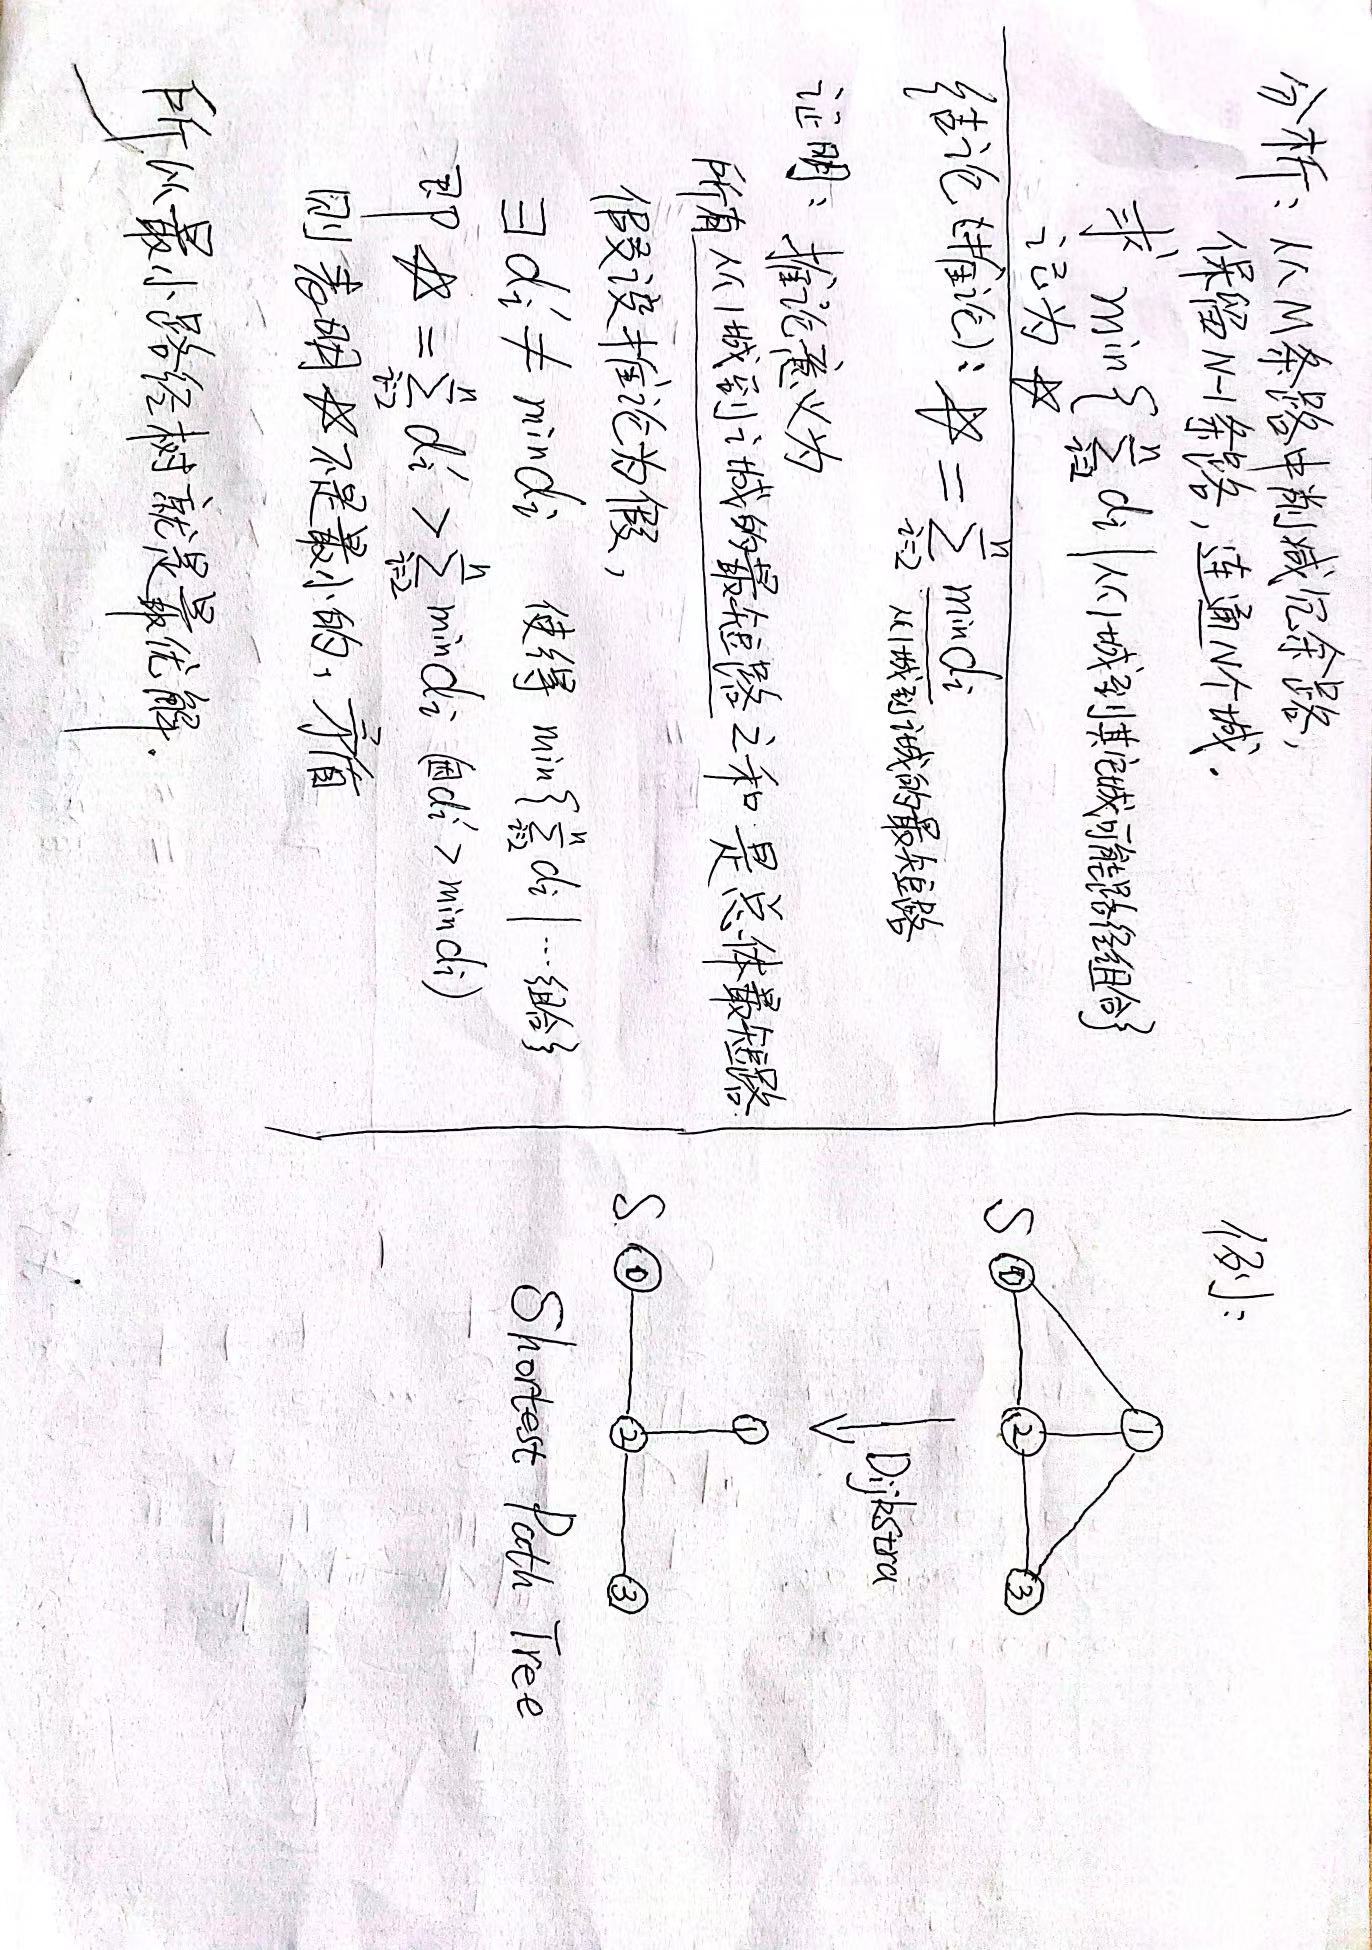 分析：从M条路中删减冗余路，
保留N-1条路，连通N个城．
求 min{∑ⁿᵢ₌₂ di | 从1城到其它城可能路径组合}
记为 ☆
结论(推论)：☆ = ∑ⁿᵢ₌₂ min di
从1城到i城的最短路
证明：推论意义为
所有从1城到i城的最短路之和是总体最短路.
假设推论为假，
∃ di′ ≠ min di 使得 min{∑ⁿᵢ₌₂ di | …组合}
即 ☆ = ∑ⁿᵢ₌₂ di′ > ∑ⁿᵢ₌₂ min di (因 di′ > min di)
则表明☆不是最小的，矛盾
所以最小路径树就是最优解．
例：
S 0 1 2 3
Dijkstra
S. 0 1 2 3
Shortest Path Tree